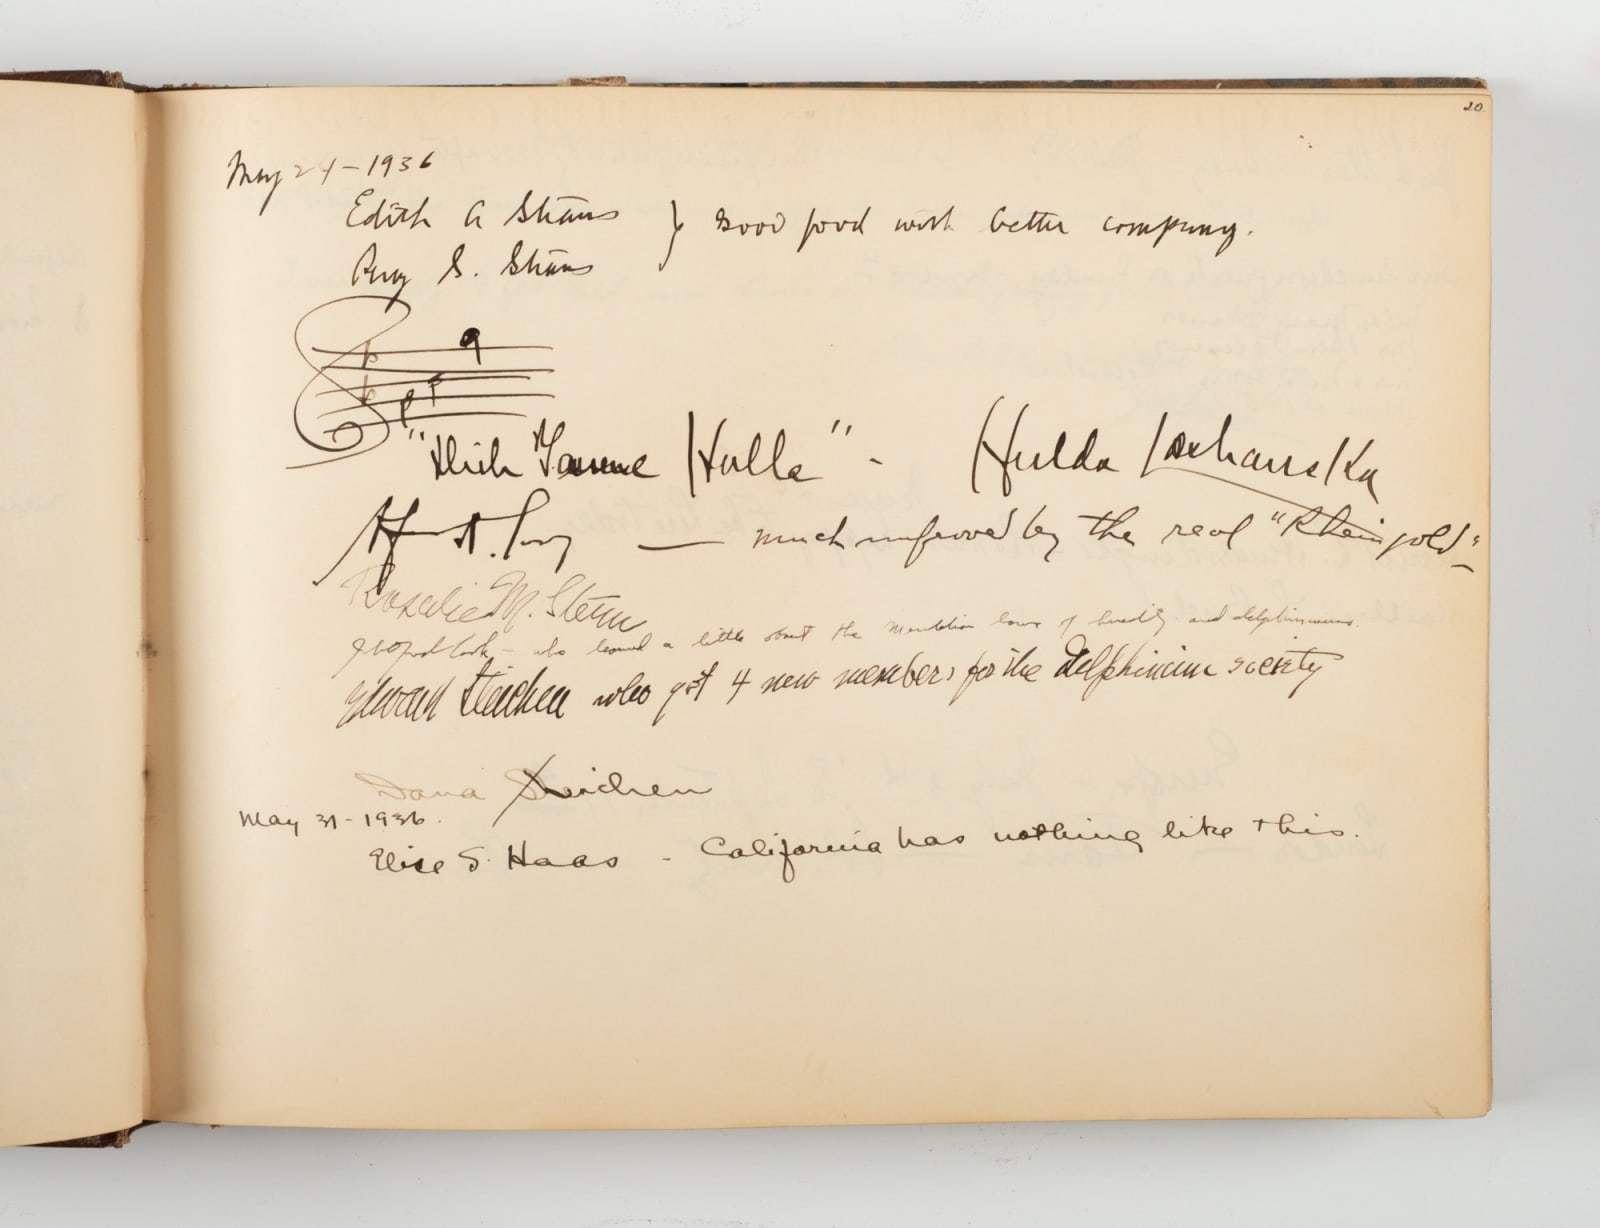 20
May 24 - 1936
Edith A Straus } Good food with better company.
Percy S. Straus
"Dich Teure Halle" - Hulda Lashanska
— much improved by the real "Rheingold"
Rosalie M. Stern
who learned a little about the Mendelian laws of heredity and delphiniums.
Edward Steichen who got 4 new members for the Delphinium society
Dana Steichen
May 31 - 1936.
Elise S. Haas - California has nothing like this.